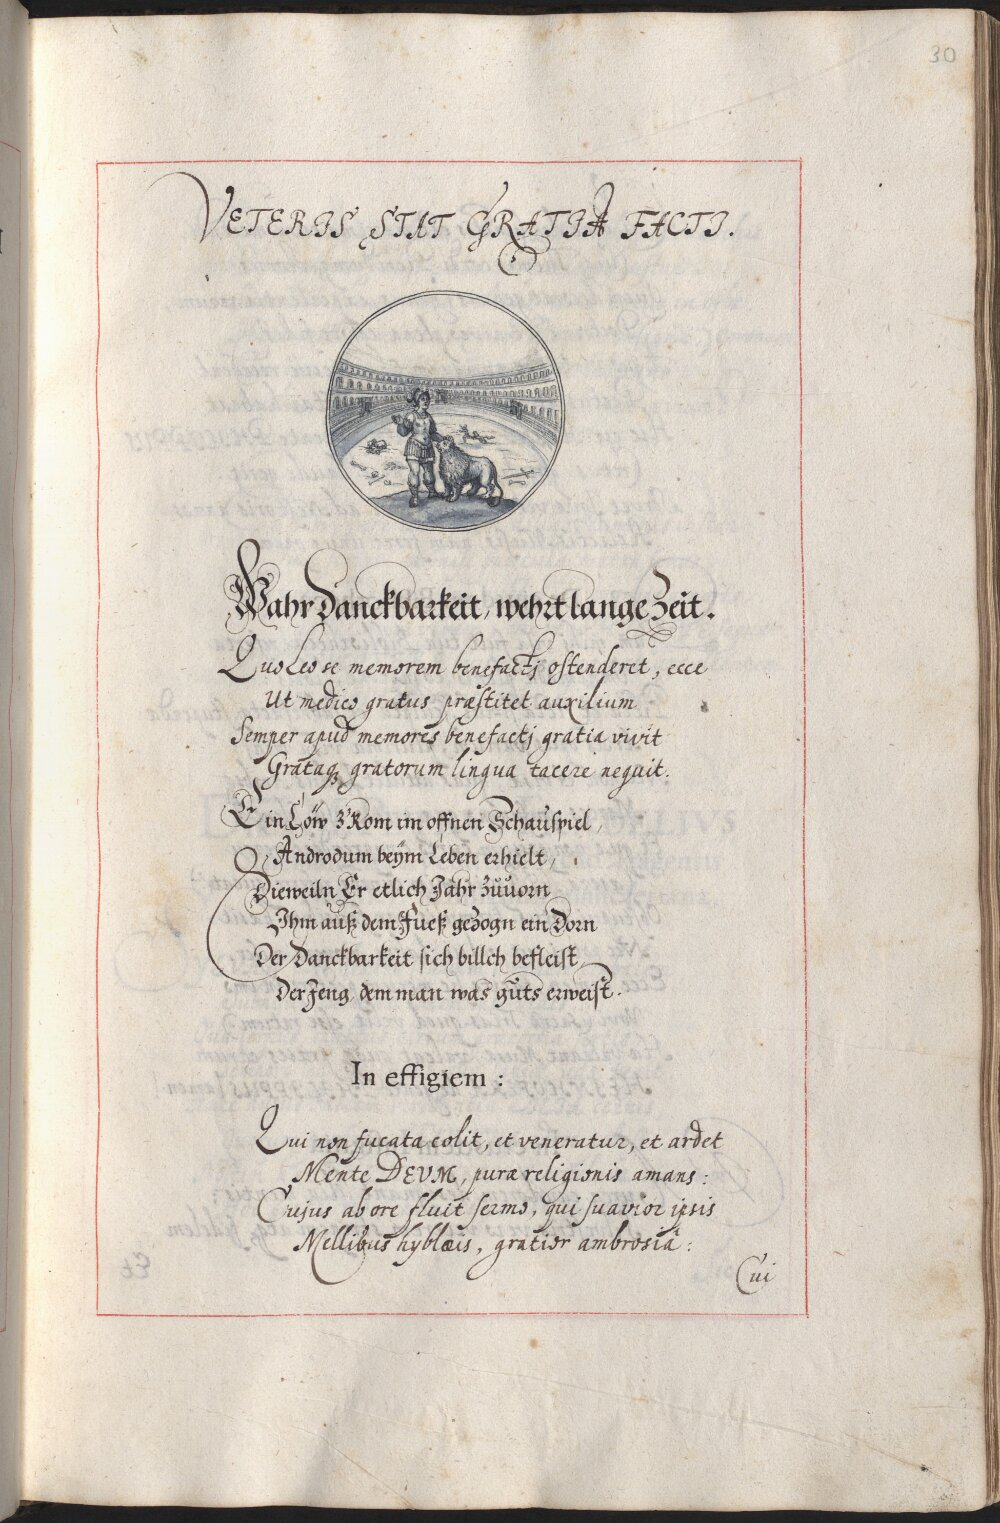 30
VETERIS STAT GRATIA FACTI.
Wahr Danckbarkeit, wehrt lange Zeit.
Quo Leo se memorem benefactj ostenderet, ecce
Ut medico gratus præstitet auxilium
Semper apud memores benefactj gratia vivit
Grataq; gratorum lingua tacere nequit.
Ein Löw z'Rom im offnen Schauspiel,
Androdum beÿm Leben erhielt,
Dieweiln Er etlich Jahr zuuorn
Ihm auß dem Fueß gezogn ein Dorn
Der Danckbarkeit sich billch befleist,
Der Jeng dem man was guts erweist.
In effigiem :
Qui non fucata colit, et veneratur, et ardet
Mente DEVM, puræ religionis amans :
Cujus ab ore fluit sermo, qui suavior ipsis
Mellibus hyblæis, gratior ambrosiâ :
Cui